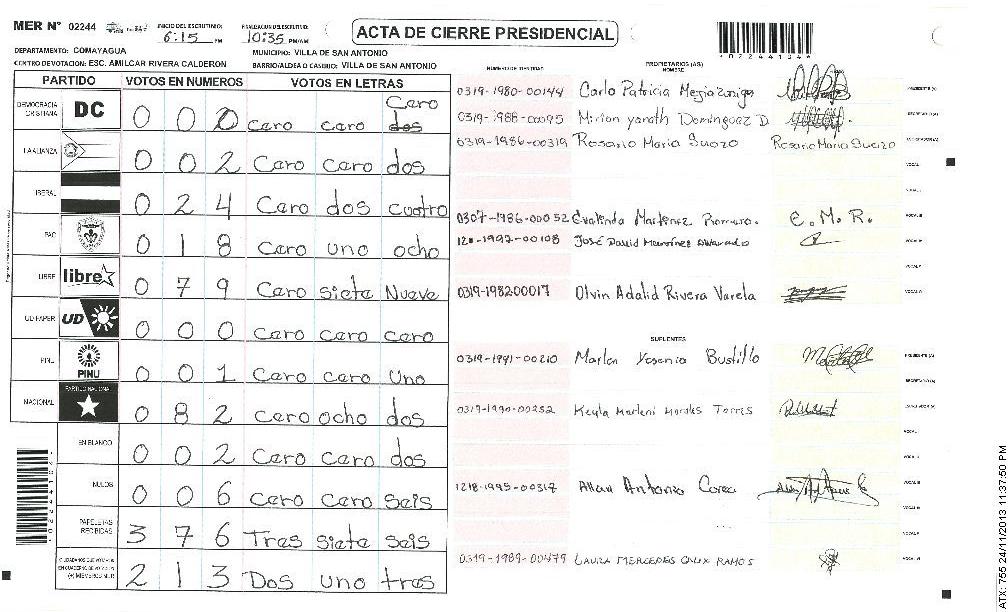 MER N° 02244 INICIO DEL ESCRUTINIO: 6:15 PM FINALIZACION DEL ESCRUTINIO: 10:35 PM/AM
ACTA DE CIERRE PRESIDENCIAL
DEPARTAMENTO: COMAYAGUA MUNICIPIO: VILLA DE SAN ANTONIO
CENTRO DE VOTACION: ESC. AMILCAR RIVERA CALDERON BARRIO/ALDEA O CASERIO: VILLA DE SAN ANTONIO
PARTIDO VOTOS EN NUMEROS VOTOS EN LETRAS
DEMOCRACIA CRISTIANA DC 0 0 0 Cero cero dos Cero
LA ALIANZA 0 0 2 Cero Cero dos
LIBERAL 0 2 4 Cero dos cuatro
PAC 0 1 8 Cero uno ocho
LIBRE libre 0 7 9 Cero siete Nueve
UD-FAPER UD 0 0 0 Cero cero cero
PINU PINU 0 0 1 Cero cero uno
NACIONAL PARTIDO NACIONAL 0 8 2 Cero ocho dos
EN BLANCO 0 0 2 Cero cero dos
NULOS 0 0 6 Cero cero seis
PAPELETAS RECIBIDAS 3 7 6 Tres siete seis
(+) MIEMBROS MER 2 1 3 Dos uno tres
NUMERO DE IDENTIDAD PROPIETARIOS (AS) NOMBRE
0319-1980-00144 Carlo Patricia Mejia Zuniga PRESIDENTE (A)
0319-1988-00095 Mirian yaneth Dominguez D. SECRETARIO (A)
0319-1986-00319 Rosario Maria Suazo Rosario Maria Suazo
0307-1986-00052 Evalinda Martinez Romero. E. M. R.
José David Martinez Alvarado
0319-198200017 Olvin Adalid Rivera Varela
SUPLENTES
0319-1991-00210 Marlen Yesenia Bustillo PRESIDENTE (A)
SECRETARIO (A)
0319-1990-00252 Keyla Marleni Morales Torres
1218-1995-00317 Allan Antonio Corea
0319-1989-00479 LAURA MERCEDES CALIX RAMOS
ATX: 755 24/11/2013 11:37:50 PM